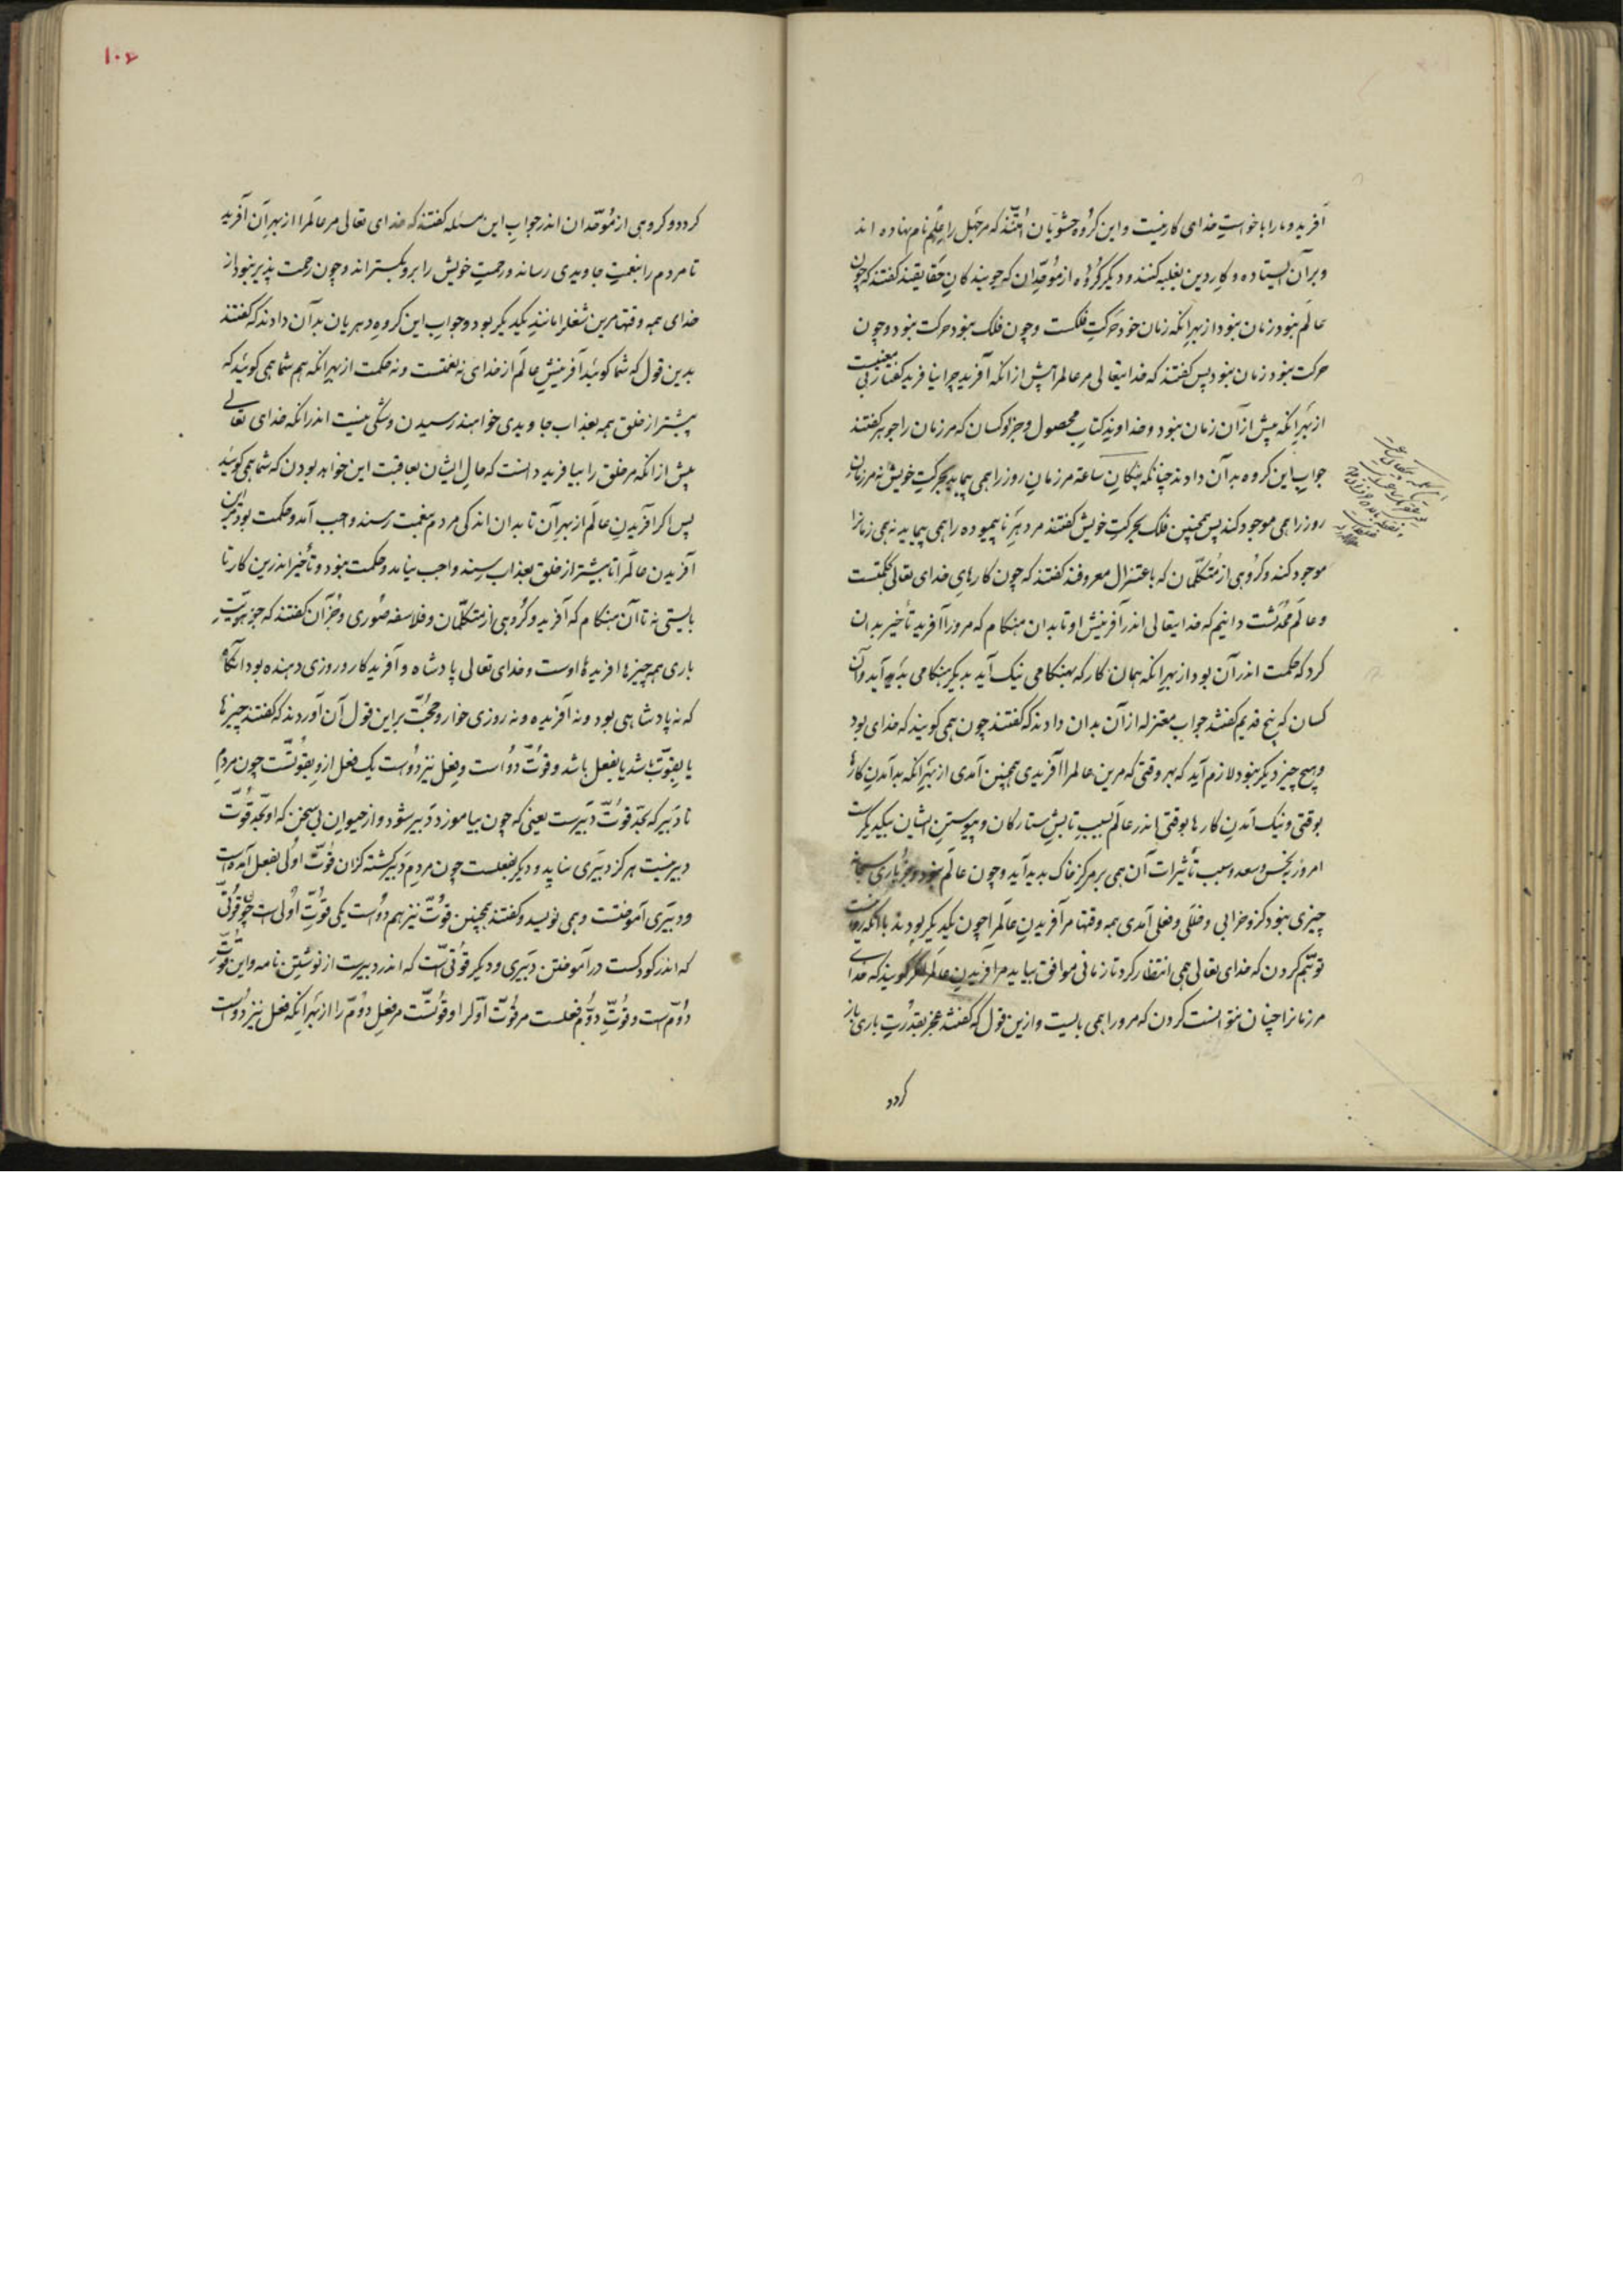 آفرید و ما را با خواستِ خدای کار نیست و این گروه حشویان اُمّتند که مر جهل را علم نام نهاده اند
و بر آن ایستاده و کارِ دین بغلبه کنند و دیگر گروه از مُوحّدان که جویندگانِ حقایقند گفتند که چون
عالم نبود زمان نبود از بهر آنکه زمان خود حرکتِ فلکست و چون فلک نبود حرکت نبود و چون
حرکت نبود زمان نبود پس گفتند که خدایتعالی مر عالم را پیش از آنکه آفرید چرا نیافرید گفتاری بی معنیست
از بهر آنکه پیش از آن زمان نبود و خداوندِ کتابِ محصول و جز او کسان که مر زمان را جوهر گفتند
جوابِ این گروه بدآن دادند چنانکه پنگانِ ساعة مر زمانِ روز را همی پیماید بحرکتِ خویش نه مر زمان
روز را همی موجود کند پس همچنین فلک بحرکتِ خویش گفتند مر دهرِ ناپیموده را همی پیماید نه همی زمانرا
موجود کند و گروهی از متکلّمان که باعتزال معروفند گفتند که چون کارهای خدای تعالی بحکمتست
و عالم مُحدَثست دانیم که خدایتعالی اندر آفرینش او تا بدان هنگام که مرو را آفرید تأخیر بدان
کرد که حکمت اندر آن بود از بهر آنکه همان کار که بهنگامی نیک آید بدیگر هنگامی بد آید و آن
کسان که پنج قدیم گفتند جوابِ معتزله از آن بدان دادند که گفتند چون همی گویند که خدای بود
و هیچ چیز دیگر نبود لازم آید که بهر وقتی که مرین عالم را آفریدی همچنین آمدی از بهر آنکه بد آمدنِ کارها
بوقتی و نیک آمدنِ کارها بوقتی اندر عالم بسببِ تابشِ ستارگان و پیوستنِ ایشان بیکدیگرست
امروز بنحس و سعد و بسبب تأثیرات آن همی بر مرکزِ خاک بدید آید و چون عالم نبود و جز باری سبحانه
چیزی نبود کزو خرابی و خللی و فعلی آمدی همه وقتها مر آفریدنِ عالم را چون یکدیگر بودند با آنکه روا نیست
توهّم کردن که خدای تعالی همی انتظار کرد تا زمانی موافق بیاید مر آفریدنِ عالم را مگر گویند که خدای
مر زمانرا چنان نتوانست کردن که مرو را همی بایست و ازین قول که گفتند عجز بقدرتِ باری باز
گردد
۱۰۶
گردد و گروهی از موحّدان اندر جوابِ این مسئله گفتند که خدای تعالی مر عالم را از بهر آن آفرید
تا مردم را بنعمتِ جاویدی رساند و رحمتِ خویش را برو بگستراند و چون رحمت پذیر نبود از
خدای همه وقتها مرین شغل را مانندِ یکدیگر بود و جوابِ این گروه دهریان بدآن دادند که گفتند
بدین قول که شما گوئید آفرینشِ عالم از خدای نه نعمتست و نه حکمت از بهر آنکه هم شما همی گوئید که
بیشتر از خلق همه بعذاب جاویدی خواهند رسیدن و شکّی نیست اندر آنکه خدای تعالی
پیش از آنکه مر خلق را بیافرید دانست که حالِ ایشان بعاقبت این خواهد بودن که شما همی گوئید
پس اگر آفریدنِ عالم از بهر آن تا بدان اندکی مردم بنعمت رسند واجب آمد و حکمت بود پس این
آفریدن عالم را تا بیشتر از خلق بعذاب رسند واجب نیاید و حکمت نبود و تأخیر اندرین کار تا
بایستی نه تا آن هنگام که آفرید و گروهی از متکلّمان و فلاسفه صُوری و جز آن گفتند که جز هویّتِ
باری همه چیزها افریدهٔ اوست و خدای تعالی پادشاه و آفریدگار و روزی دهنده بود آنگاه
که نه پادشاهی بود و نه آفریده و نه روزی خوار و حجّت بر این قول آن آوردند که گفتند چیزها
یا بقوّت باشد یا بفعل باشد و قوّت دو است و فعل نیز دو است یک فعل ازو بقوّتست چون مردمِ
نا دبیر که بحدّ قوّت دبیرست یعنی که چون بیاموزد دبیر شود و از حیوان بی سخن که او بحدّ قوّت
دبیر نیست هرگز دبیری نیاید و دیگر بفعلست چون مردم دبیر گشته کزان قوّت اولی بفعل آمده است
و دبیری آموختست و همی نویسد و گفتند همچنین قوّت نیز هم دو است یکی قوّتِ اولی است چون قوّتی
که اندر کودکست در آموختن دبیری و دیگر قوّتی است که اندر دبیرست از نوشتنِ نامه و این قوّتِ
دوم است و قوّتِ دوم فعلست مر قوّت اوّل را و قوّتست مر فعلِ دوم را از بهر آنکه فعل نیز دو است